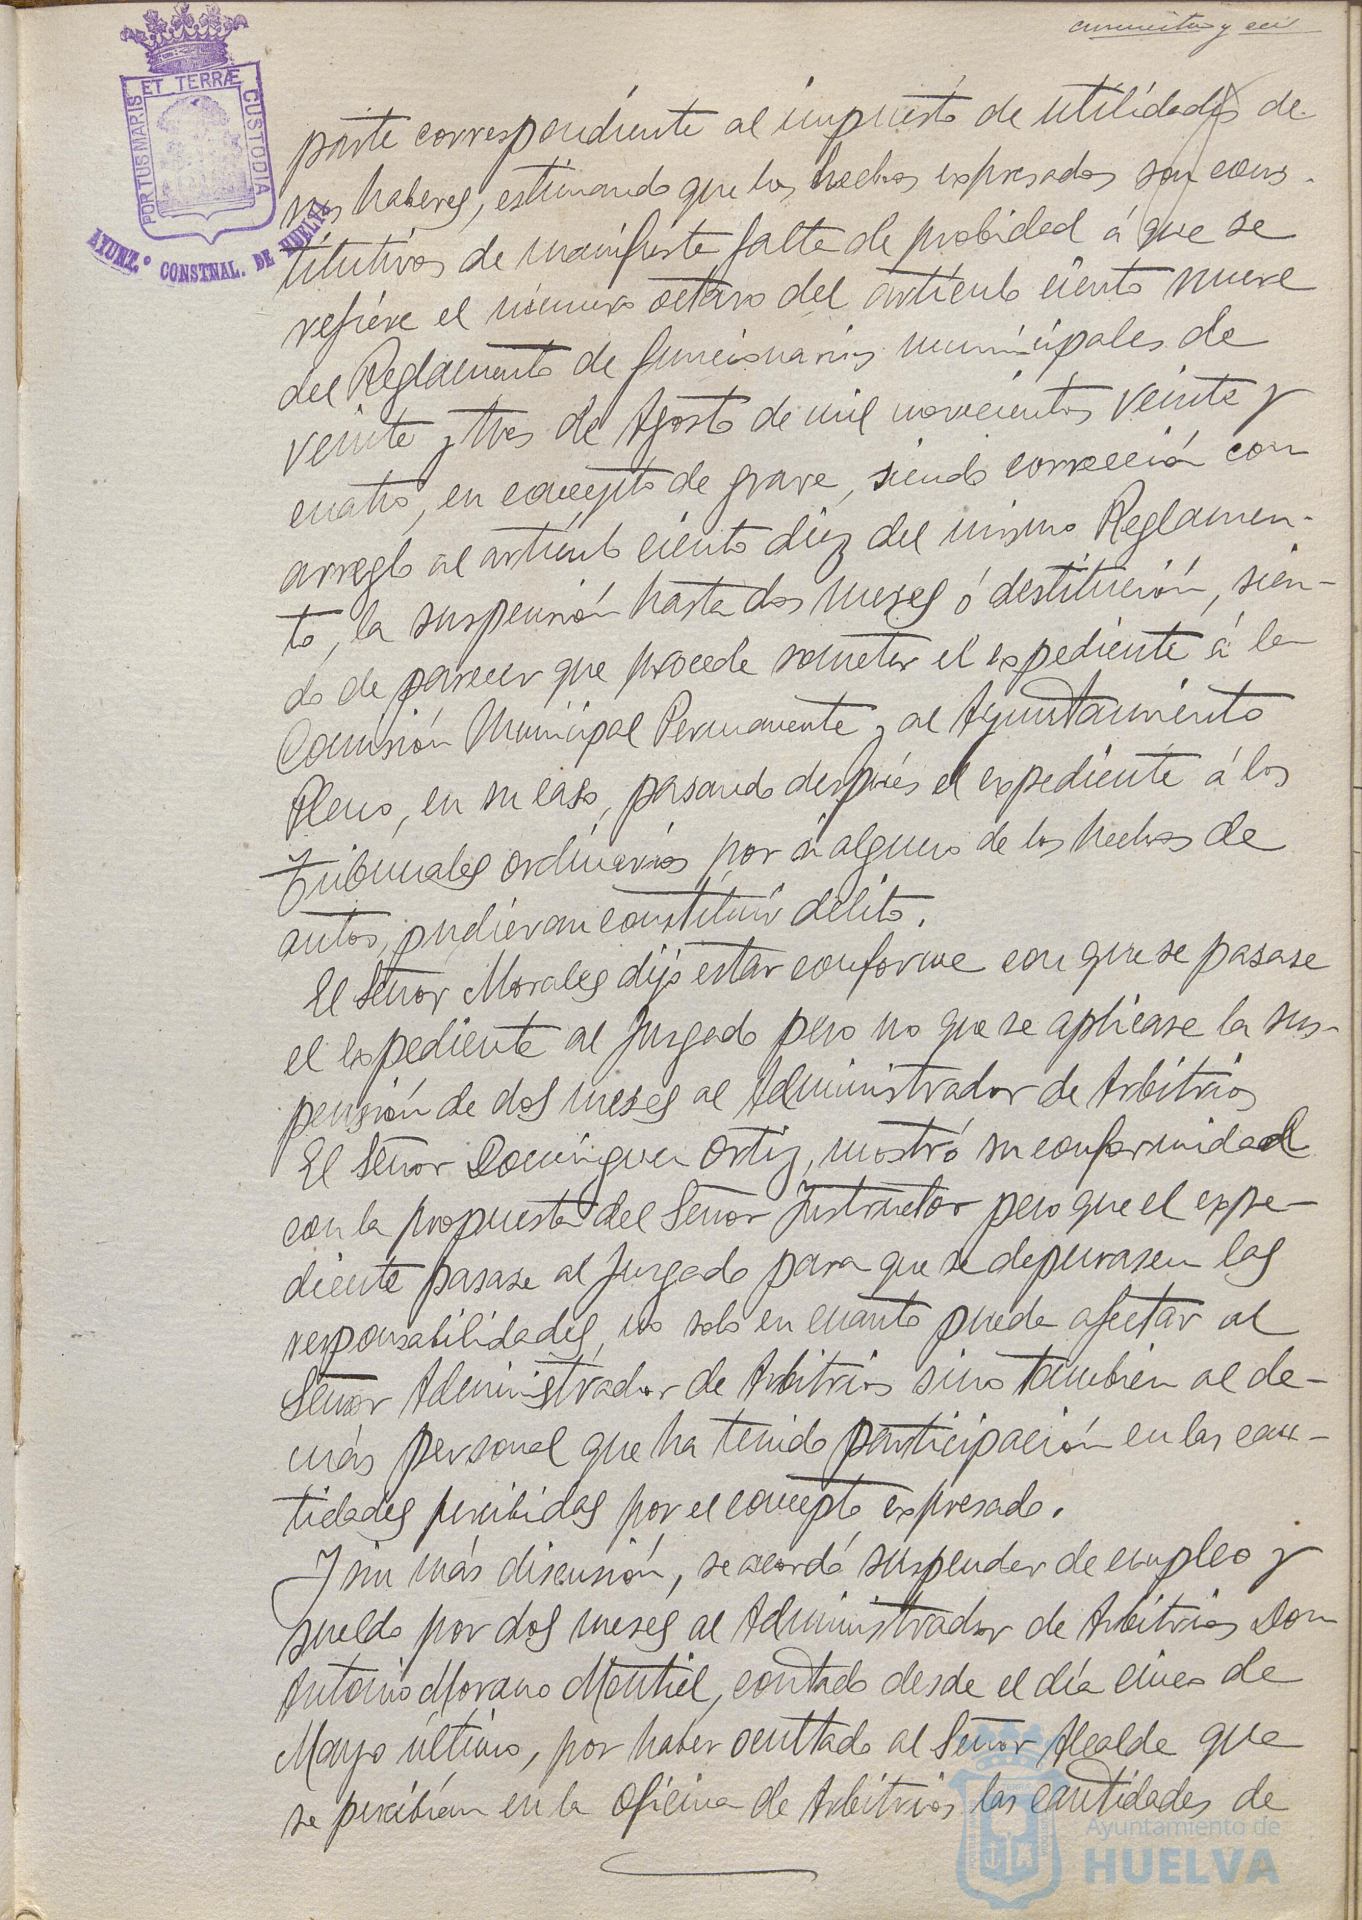 cincuenta y seis
PORTUS MARIS ET TERRÆ CUSTODIA
AYUNT.º CONSTNAL. DE HUELVA
parte correspondiente al impuesto de utilidades de
sus haberes, estimando que los hechos expresados son cons-
titutivos de manifiesta falta de probidad á que se
refiere el número octavo del artículo ciento nueve
del Reglamento de funcionarios municipales de
veinte y tres de Agosto de mil novecientos veinte y
cuatro, en concepto de grave, siendo corrección con
arreglo al artículo ciento diez del mismo Reglamen-
to, la suspensión hasta dos meses ó destitución, sien-
do de parecer que procede someter el expediente á la
Comisión Municipal Permanente y al Ayuntamiento
Pleno, en su caso, pasando después el expediente á los
Tribunales ordinarios por si alguno de los hechos de
autos, pudieran constituir delito.
El Señor Morales dijo estar conforme con que se pasase
el expediente al Juzgado pero no que se aplicase la sus-
pensión de dos meses al Administrador de Arbitrios
El Señor Domínguez Ortiz, mostró su conformidad
con la propuesta del Señor Instructor pero que el expe-
diente pasase al Juzgado para que se depurasen las
responsabilidades, no solo en cuanto puede afectar al
Señor Administrador de Arbitrios sino también al de-
más personal que ha tenido participación en las can-
tidades percibidas por el concepto expresado.
Y sin más discusión, se acordó suspender de empleo y
sueldo por dos meses al Administrador de Arbitrios Don
Antonio Morano Montiel, contado desde el día cinco de
Mayo último, por haber ocultado al Señor Alcalde que
se percibían en la Oficina de Arbitrios las cantidades de
Ayuntamiento de
HUELVA